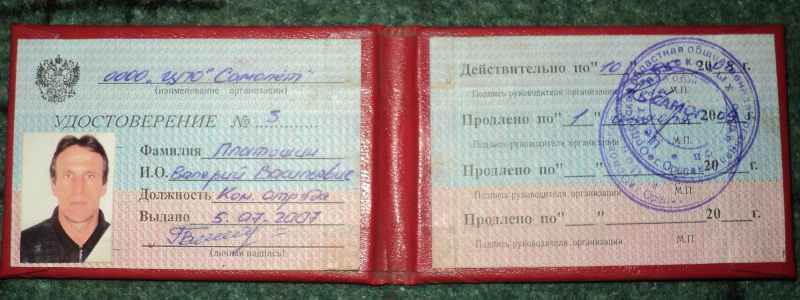 ОООО „ЦПЮ" Самолёт"
(наименование организации)
УДОСТОВЕРЕНИЕ № 5
Фамилия Платошин
И.О. Валерий Васильевич
Должность Ком. отряда
Выдано 5.07.2007
(личная подпись)
Действительно по "10" 2008 г.
Подпись руководителя организации М.П.
Продлено по "1" 2009 г.
Подпись руководителя организации М.П.
Продлено по "__" 20__ г.
Подпись руководителя организации М.П.
Продлено по "__" 20__ г.
Подпись руководителя организации М.П.